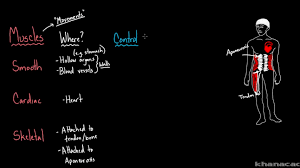 "Movements"
Muscles Where? Control
(e.g. stomach)
Smooth - Hollow organs
- Blood vessels } Walls
Cardiac - Heart
Skeletal - Attached to
tendon/bone
- Attached to
Aponeurosis
Aponeurosis
Tendon
khanacad